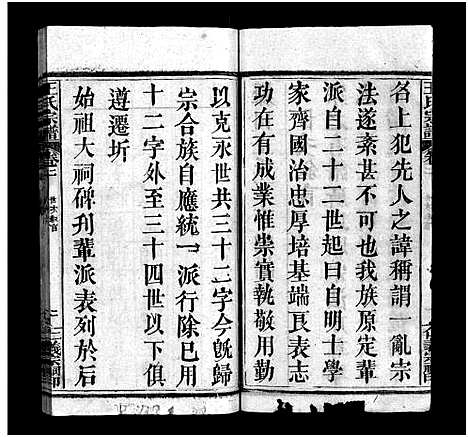 王氏宗譜
名上犯先人之諱稱謂一亂宗
法遂紊甚不可大我族原定輩
派自二十二世起曰自明士學
家齊國治忠厚培基端良表志
功在有成業惟崇實執敬用勤
以克永世共三十二字今旣歸
宗合族自應統一派行除已用
十二字外至三十四世以下俱
遵遷圻
始祖大祠碑刋輩派表列於石
王氏宗譜